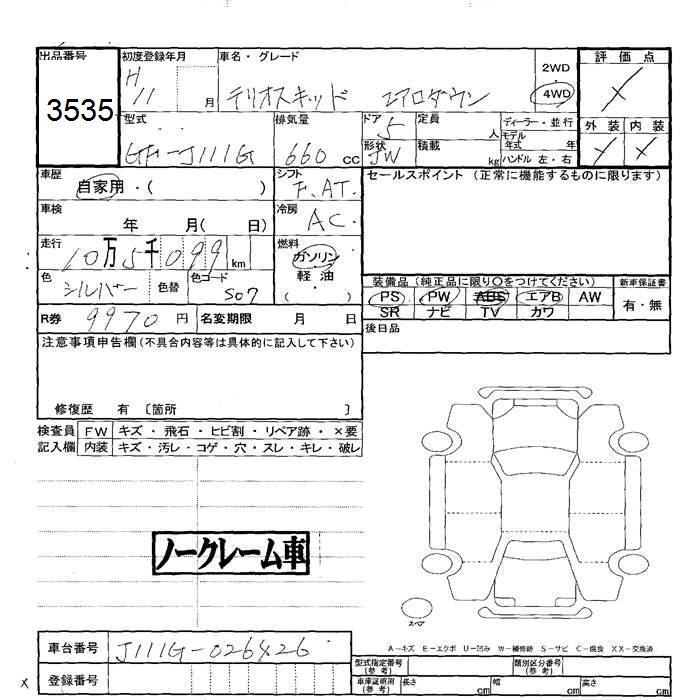 出品番号
3535
初度登録年月
H 11 月
車名・グレード
テリオスキッド エアロダウン
2WD
4WD
評価点
外装 内装
型式
GF-J111G
排気量
660 cc
ドア 5
形状 JW
定員 人
積載 kg
ディーラー・並行
モデル年式 年
ハンドル 左・右
車歴
自家用・( )
シフト
F.AT
セールスポイント(正常に機能するものに限ります)
車検
年 月( 日)
冷房
AC
走行
10万5千099 km
燃料
ガソリン
軽油
( )
色
シルバー
色替
色コード
S07
装備品(純正品に限り○をつけてください)
PS PW ABS エアB AW
SR ナビ TV カワ
新車保証書
有・無
R券 9970円
名変期限 月 日
後日品
注意事項申告欄(不具合内容等は具体的に記入して下さい)
修復歴 有 〔箇所 〕
検査員記入欄
FW キズ・飛石・ヒビ割・リペア跡・×要
内装 キズ・汚レ・コゲ・穴・スレ・キレ・破レ
ノークレーム車
スペア
A-キズ E-エクボ U-凹み W-補修跡 S-サビ C-腐食 XX-交換済
車台番号 J111G-026426
登録番号
型式指定番号(参考)
類別区分番号(参考)
車庫証明用(参考) 長さ cm 幅 cm 高さ cm
x